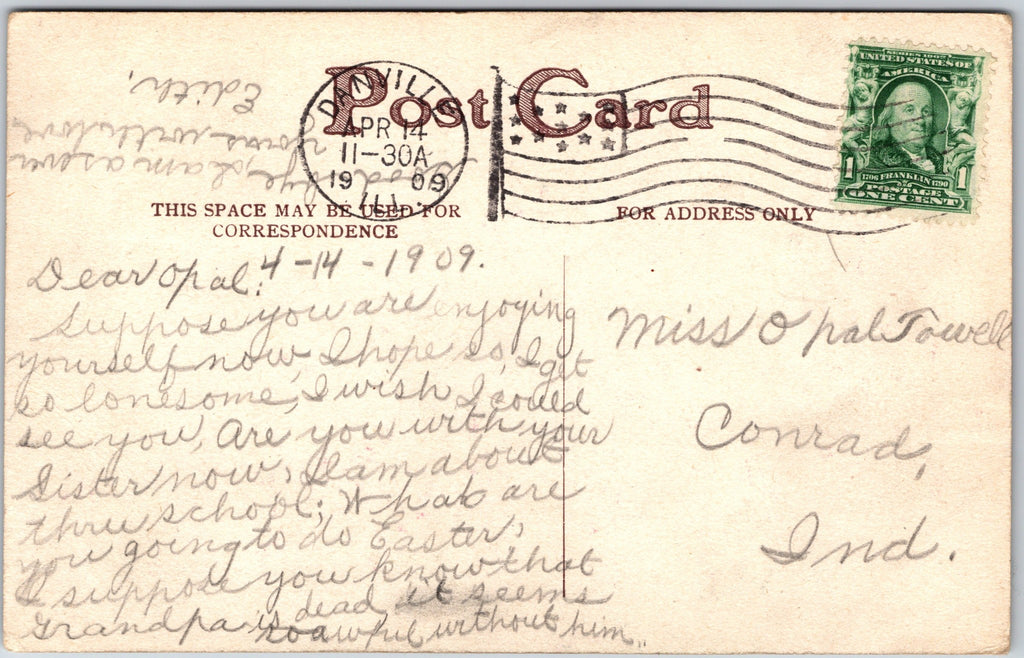 Post Card
DANVILLE
APR 14
11-30A
1909
ILL.
SERIES 1902
UNITED STATES OF
AMERICA
1706 FRANKLIN 1790
1 POSTAGE 1
ONE CENT
THIS SPACE MAY BE USED FOR
CORRESPONDENCE
FOR ADDRESS ONLY
Dear Opal: 4-14-1909.
Suppose you are enjoying
yourself now, I hope so, I get
so lonesome, I wish I could
see you, Are you with your
Sister now, I am about
thru school; What are
you going to do Easter,
I suppose you know that
Grandpa is dead it seems
so awful without him..
Good
bye, I am as ever
yours with love
Edith,
Miss Opal Towell
Conrad,
Ind.